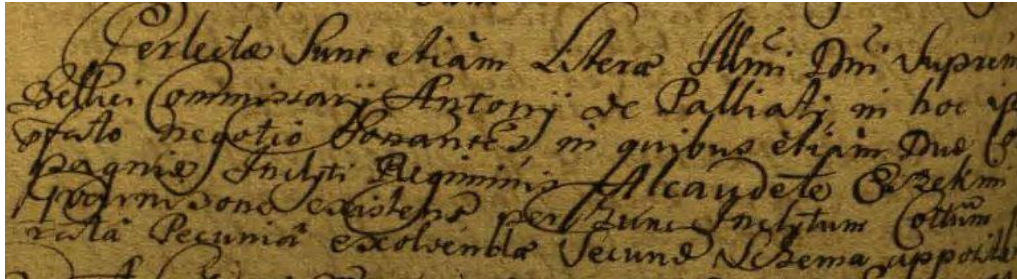 Perlectæ Sunt etiam Literæ Illmi Dni Suprem
Bellici Commissarij Antonij de Palliati, in hoc
pfato negotio Sonantes, in quibus etiam Duæ
pagniæ Inclyti Regiminis Alcaudete
existens per Inclytum Cottum
rata Pecunia exolvendæ Secund Schema apposit